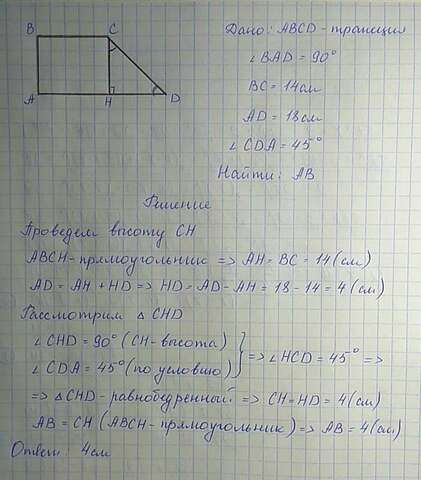 B C
A H D
Дано: ABCD - трапеция
∠BAD = 90°
BC = 14 см
AD = 18 см
∠CDA = 45°
Найти: AB
Решение
Проведем высоту CH
ABCH - прямоугольник => AH = BC = 14 (см)
AD = AH + HD => HD = AD - AH = 18 - 14 = 4 (см)
Рассмотрим △ CHD
∠CHD = 90° (CH - высота)
∠CDA = 45° (по условию) } => ∠HCD = 45° =>
=> △CHD - равнобедренный => CH = HD = 4 (см)
AB = CH (ABCH - прямоугольник) => AB = 4 (см)
Ответ: 4 см